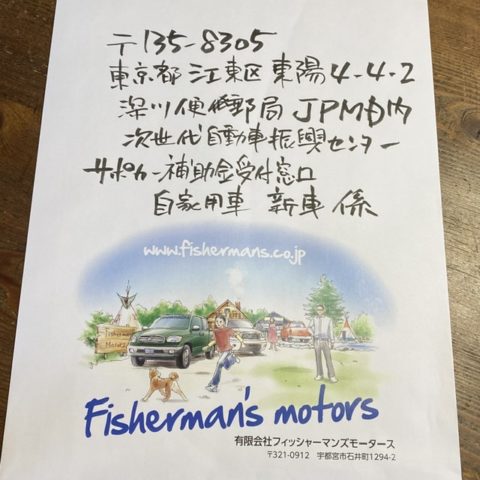 〒135-8305
東京都江東区東陽4-4-2
深川便郵局 JPM内
次世代自動車振興センター
サポカー補助金受付窓口
自家用車 新車 係
www.fishermans.co.jp
Fisherman's motors
有限会社フィッシャーマンズモータース
〒321-0912 宇都宮市石井町1294-2